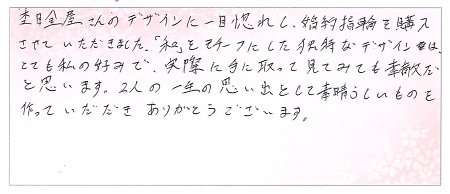 杢目金屋さんのデザインに一目惚れし、婚約指輪を購入
させていただきました。「和」をモチーフにした独特なデザインは、
とても私の好みで、実際に手に取って見てみても素敵だ
と思います。2人の一生の思い出として素晴らしいものを
作っていただきありがとうございます。